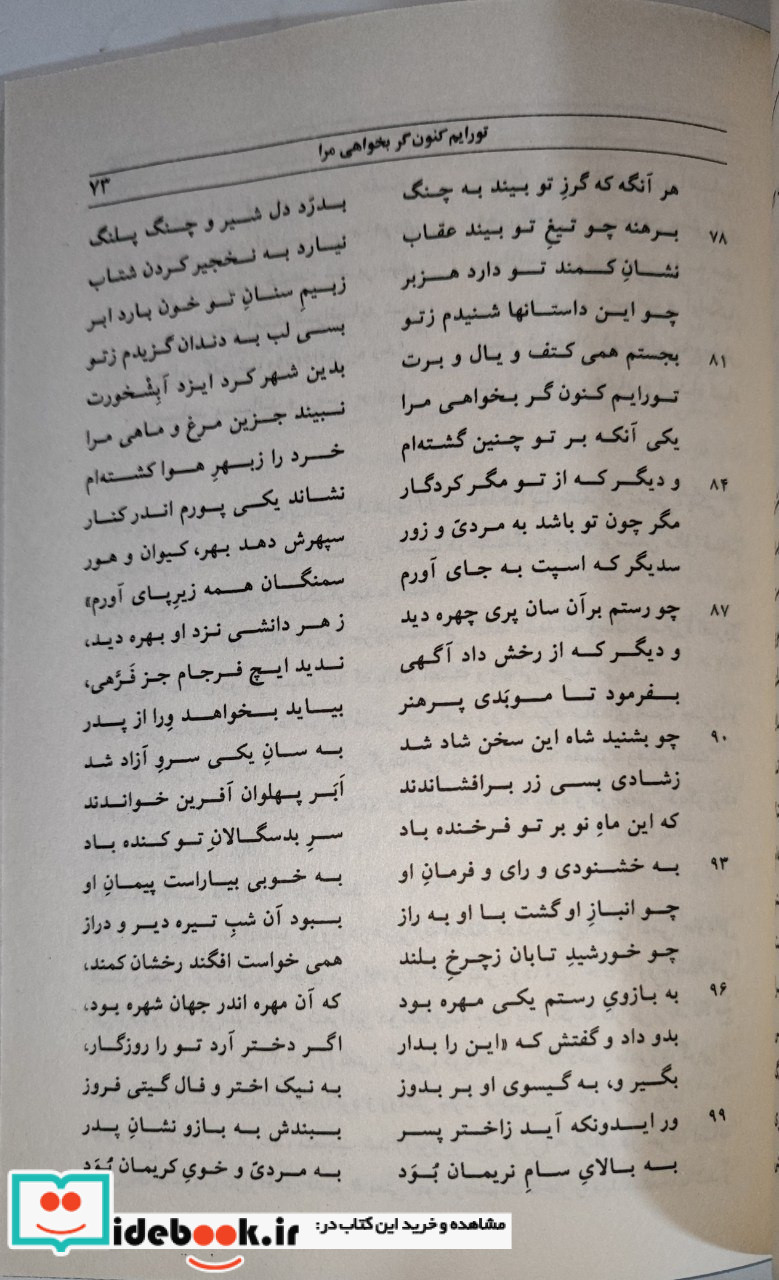 تورایم کنون گر بخواهی مرا
۷۳
هر آنگه که گرزِ تو بیند به چنگ بدرّد دل شیر و چنگ پلنگ
۷۸ برهنه چو تیغِ تو بیند عقاب نیارد به نخجیر کردن شتاب
نشانِ کمند تو دارد هزبر زبیمِ سنانِ تو خون بارد ابر
چو این داستانها شنیدم زتو بسی لب به دندان گزیدم زتو
۸۱ بجستم همی کتف و یال و برت بدین شهر کرد ایزد آبِشْخورت
تورایم کنون گر بخواهی مرا نبیند جزین مرغ و ماهی مرا
یکی آنکه بر تو چنین گشته‌ام خرد را زبهرِ هوا کشته‌ام
۸۴ و دیگر که از تو مگر کردگار نشاند یکی پورم اندر کنار
مگر چون تو باشد به مردیّ و زور سپهرش دهد بهر، کیوان و هور
سدیگر که اسپت به جای آورم سمنگان همه زیرِپای آورم»
۸۷ چو رستم برآن سان پری چهره دید ز هر دانشی نزد او بهره دید،
و دیگر که از رخش داد آگهی ندید ایچ فرجام جز فَرَّهی،
بفرمود تا موبَدی پرهنر بیاید بخواهد وِرا از پدر
۹۰ چو بشنید شاه این سخن شاد شد به سانِ یکی سروِ آزاد شد
زشادی بسی زر برافشاندند اَبَر پهلوان آفرین خواندند
که این ماهِ نو بر تو فرخنده باد سرِ بدسگالانِ تو کنده باد
۹۳ به خشنودی و رای و فرمانِ او به خوبی بیاراست پیمانِ او
چو انبازِ او گشت با او به راز ببود آن شبِ تیره دیر و دراز
چو خورشیدِ تابان زچرخِ بلند همی خواست افگند رخشان کمند،
۹۶ به بازویِ رستم یکی مهره بود که آن مهره اندر جهان شهره بود،
بدو داد و گفتش که «این را بدار اگر دختر آرد تو را روزگار،
بگیر و، به گیسوی او بر بدوز به نیک اختر و فال گیتی فروز
۹۹ ور ایدونکه آید زاختر پسر ببندش به بازو نشانِ پدر
به بالایِ سامِ نریمان بُوَد به مردیّ و خویِ کریمان بُوَد
idebook.ir
مشاهده و خرید این کتاب در: